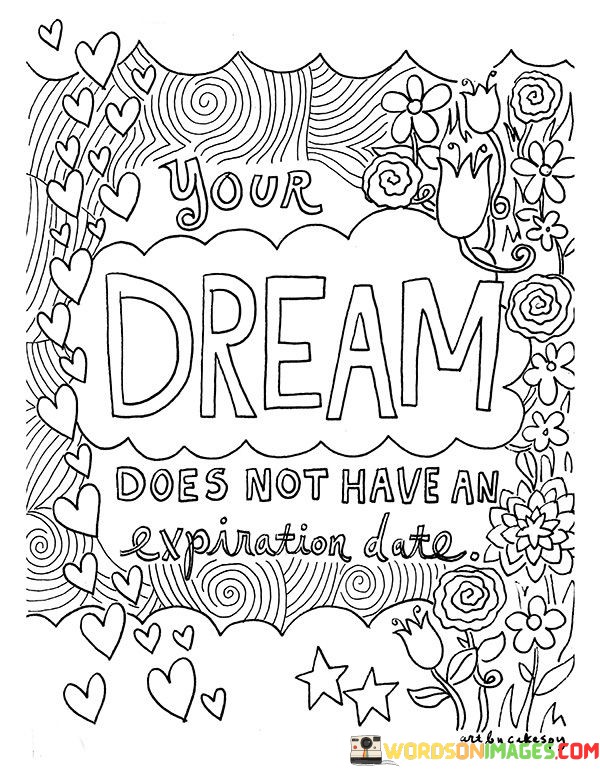 YOUR
DREAM
DOES NOT HAVE AN
expiration date.
WORDSONIMAGES.COM